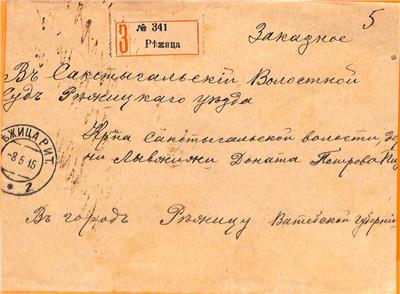 5
№ 341
З Рѣжица
Заказное
Въ Сакстыгальскій Волостной
Судъ Рѣжицкаго уѣзда
Кр-на Сакстыгальской волости, де
ни Доната Петрова
ѢЖИЦА РИТ.
-8 5 15
* 2
Въ городъ Рѣжицу Витебской губерніи